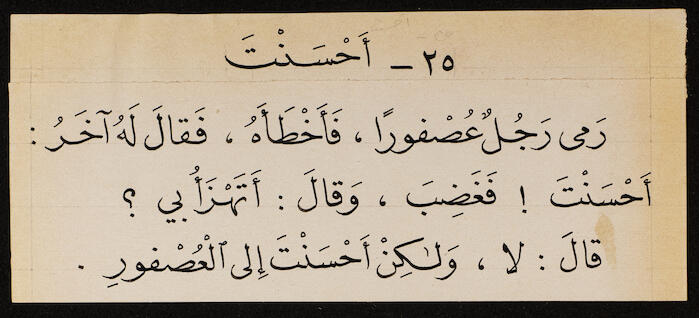 ٢٥ - أَحْسَنْتَ
رَمى رَجُلٌ عُصْفورًا ، فَأَخْطَأَهُ ، فَقالَ لَهُ آخَرُ :
أَحْسَنْتَ ! فَغَضِبَ ، وَقالَ : أَتَهْزَأُ بي ؟
قالَ : لا ، وَلٰكِنْ أَحْسَنْتَ إِلى ٱلْعُصْفورِ .